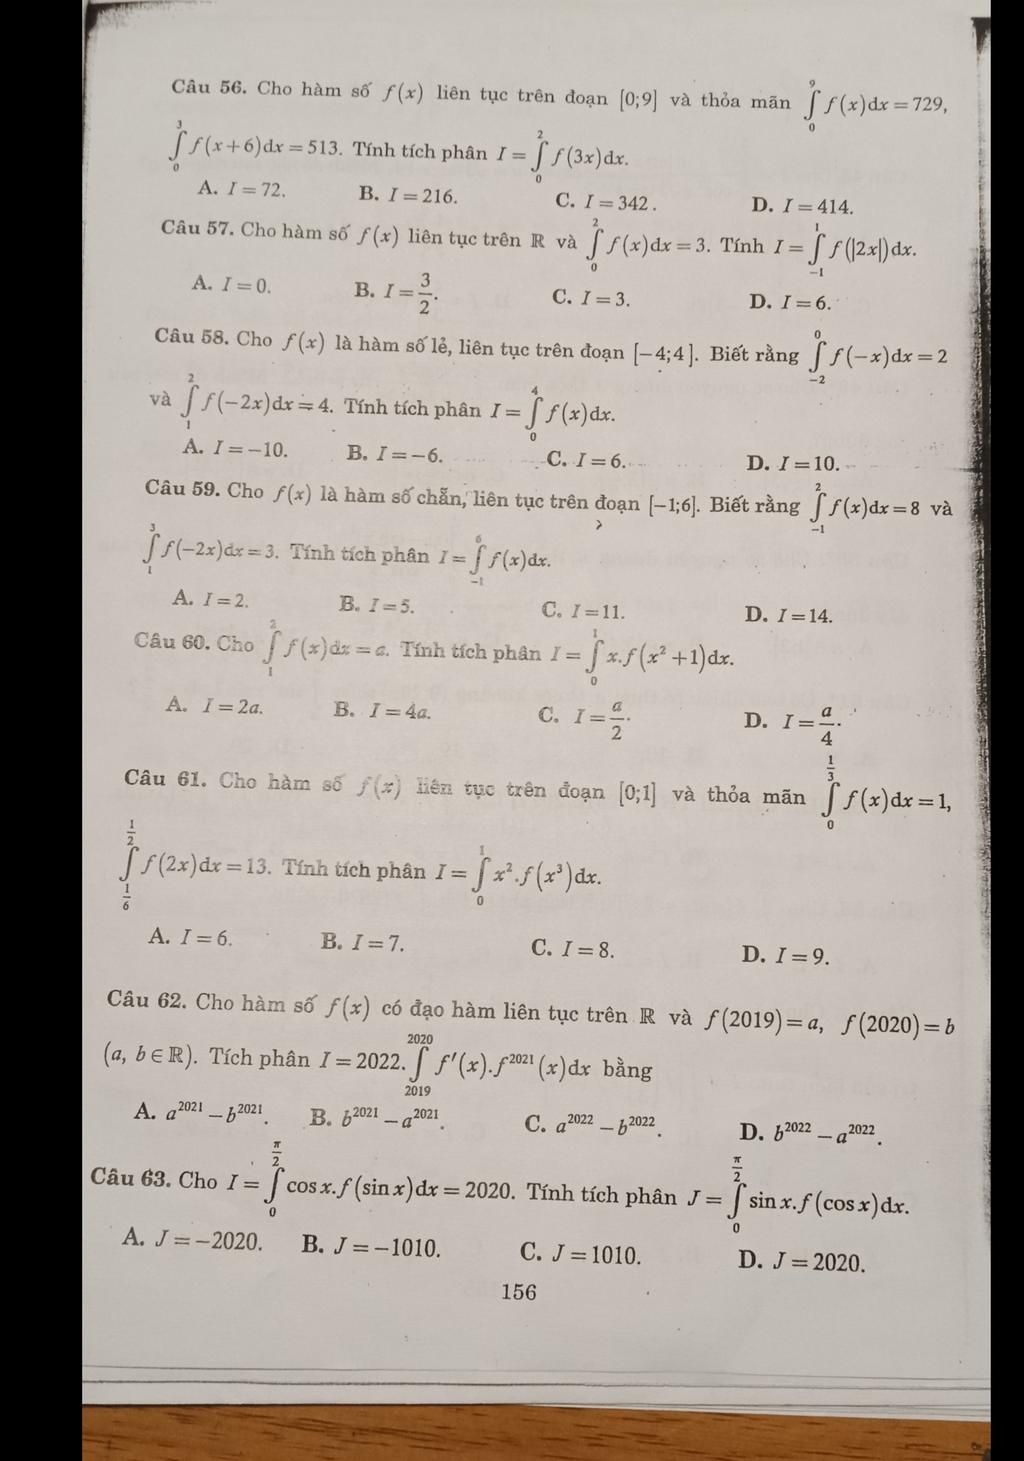 Câu 56. Cho hàm số f(x) liên tục trên đoạn [0;9] và thỏa mãn ∫₀⁹ f(x)dx = 729,
∫₀³ f(x+6)dx = 513. Tính tích phân I = ∫₀² f(3x)dx.
A. I = 72. B. I = 216. C. I = 342. D. I = 414.
Câu 57. Cho hàm số f(x) liên tục trên ℝ và ∫₀² f(x)dx = 3. Tính I = ∫₋₁¹ f(|2x|)dx.
A. I = 0. B. I = 3/2. C. I = 3. D. I = 6.
Câu 58. Cho f(x) là hàm số lẻ, liên tục trên đoạn [−4;4]. Biết rằng ∫₋₂⁰ f(−x)dx = 2
và ∫₁² f(−2x)dx = 4. Tính tích phân I = ∫₀⁴ f(x)dx.
A. I = −10. B. I = −6. C. I = 6. D. I = 10.
Câu 59. Cho f(x) là hàm số chẵn, liên tục trên đoạn [−1;6]. Biết rằng ∫₋₁² f(x)dx = 8 và
∫₁³ f(−2x)dx = 3. Tính tích phân I = ∫₋₁⁶ f(x)dx.
A. I = 2. B. I = 5. C. I = 11. D. I = 14.
Câu 60. Cho ∫₁² f(x)dx = a. Tính tích phân I = ∫₀¹ x.f(x² + 1)dx.
A. I = 2a. B. I = 4a. C. I = a/2. D. I = a/4.
Câu 61. Cho hàm số f(x) liên tục trên đoạn [0;1] và thỏa mãn ∫₀^(1/3) f(x)dx = 1,
∫_(1/6)^(1/2) f(2x)dx = 13. Tính tích phân I = ∫₀¹ x².f(x³)dx.
A. I = 6. B. I = 7. C. I = 8. D. I = 9.
Câu 62. Cho hàm số f(x) có đạo hàm liên tục trên ℝ và f(2019) = a, f(2020) = b
(a, b ∈ ℝ). Tích phân I = 2022.∫₂₀₁₉²⁰²⁰ f′(x).f²⁰²¹(x)dx bằng
A. a²⁰²¹ − b²⁰²¹. B. b²⁰²¹ − a²⁰²¹. C. a²⁰²² − b²⁰²². D. b²⁰²² − a²⁰²².
Câu 63. Cho I = ∫₀^(π/2) cos x.f(sin x)dx = 2020. Tính tích phân J = ∫₀^(π/2) sin x.f(cos x)dx.
A. J = −2020. B. J = −1010. C. J = 1010. D. J = 2020.
156